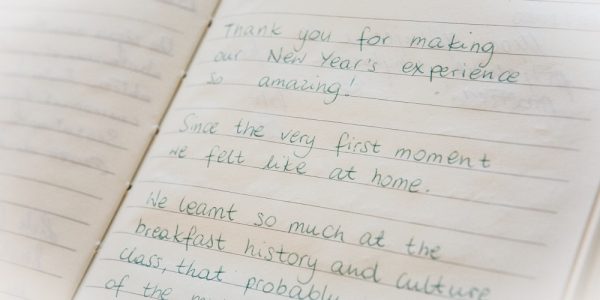 Thank you for making
our New Year's experience
so amazing!
Since the very first moment
we felt like at home.
We learnt so much at the
breakfast history and culture
class, that probably
of the